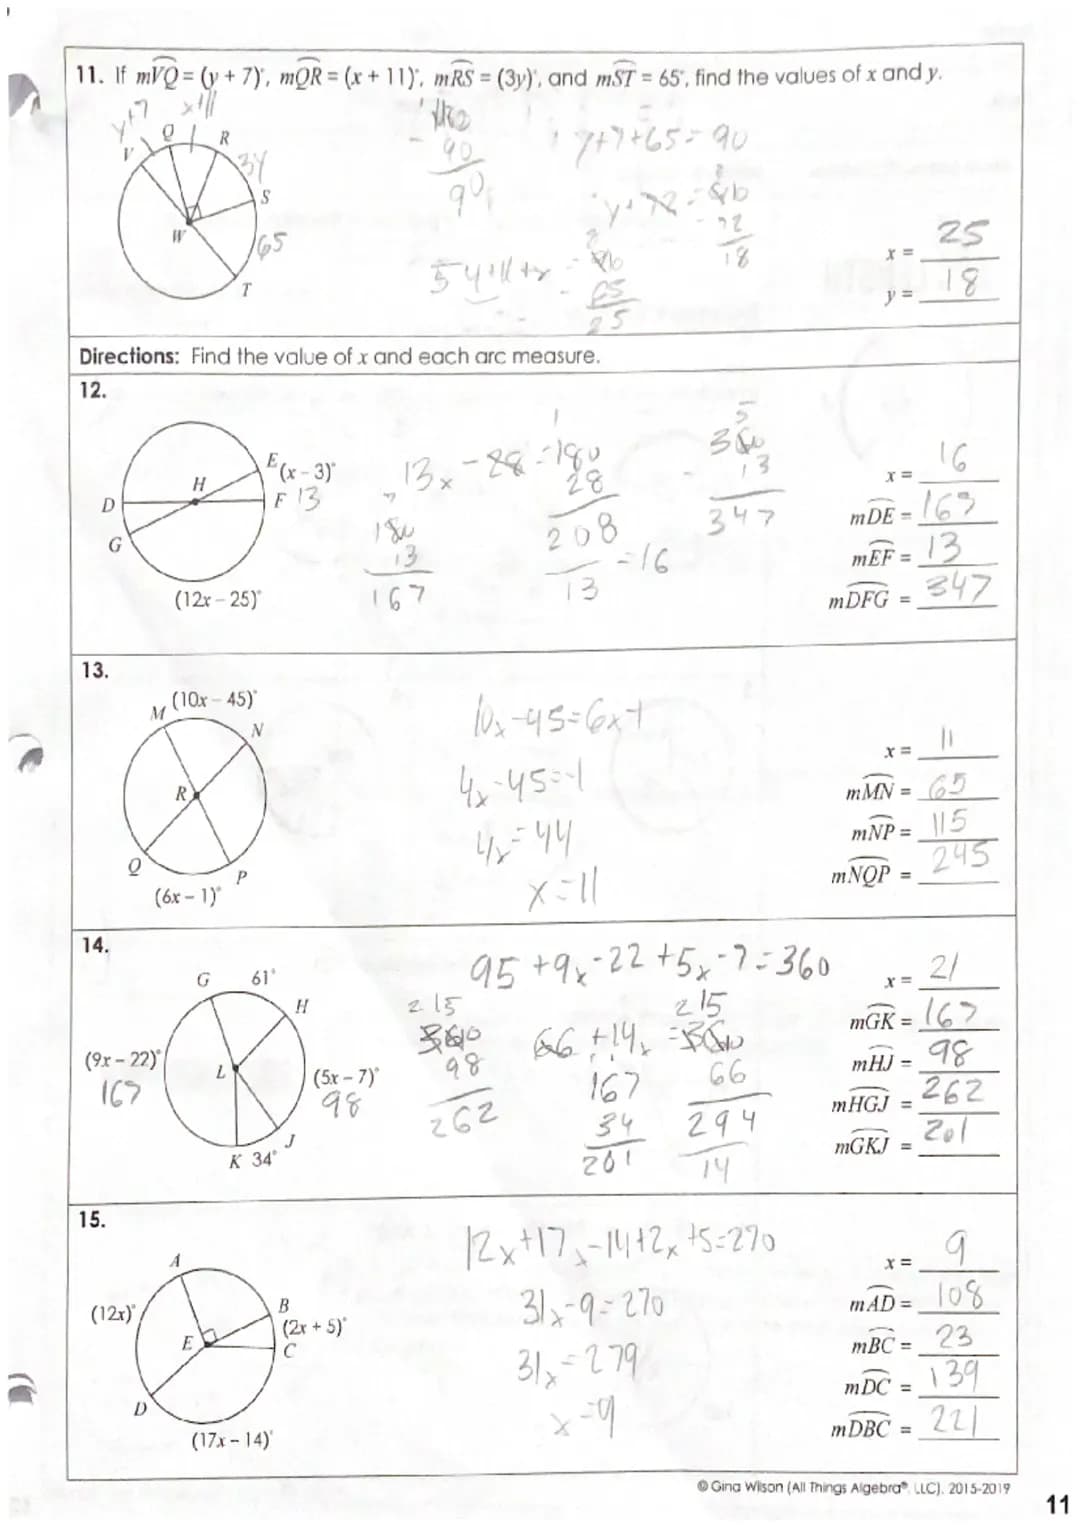 11. If mVQ = (y + 7)°, mQR = (x + 11)°, mRS = (3y)°, and mST = 65°, find the values of x and y.
y+7
x+11
V
Q
R
3y
S
W
65
T
90
90
y+7+65=90
y+72=90
72
18
54+11+x = 90
65
25
x = 25
y = 18
Directions: Find the value of x and each arc measure.
12.
E
(x – 3)°
H
D
F 13
G
(12x – 25)°
13x - 28 = 180
28
208
13
=16
180
13
167
360
13
347
x = 16
mDE = 167
mEF = 13
mDFG = 347
13.
(10x – 45)°
M
N
R
Q
P
(6x – 1)°
10x-45=6x-1
4x-45=-1
4x=44
x=11
x = 11
mMN = 65
mNP = 115
mNQP = 245
14.
G
61°
H
(9x – 22)°
167
L
(5x – 7)°
98
J
K 34°
95+9x-22+5x-7=360
215
360
98
262
66+14x=360
215
66
294
14
167
34
201
x = 21
mGK = 167
mHJ = 98
mHGJ = 262
mGKJ = 201
15.
A
(12x)°
B
(2x + 5)°
E
C
D
(17x – 14)°
12x+17x-14+2x+5=270
31x-9=270
31x=279
x=9
x = 9
mAD = 108
mBC = 23
mDC = 139
mDBC = 221
© Gina Wilson (All Things Algebra®, LLC), 2015-2019
11